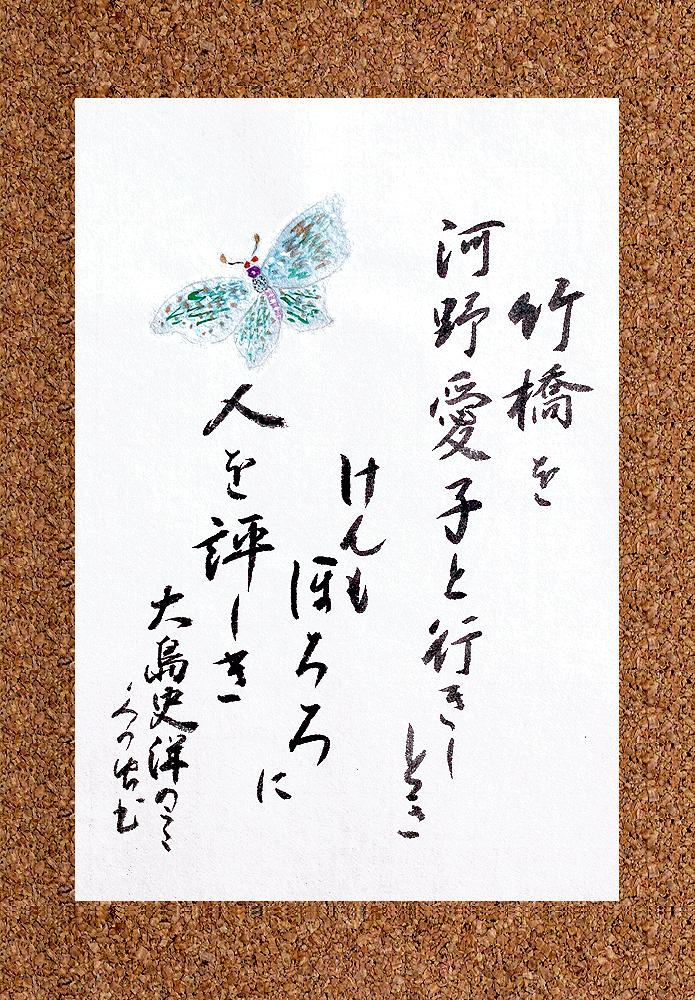 竹橋を
河野愛子と行きし
とき
けんも
ほろろ
に
人を評しき
大島史洋のうた